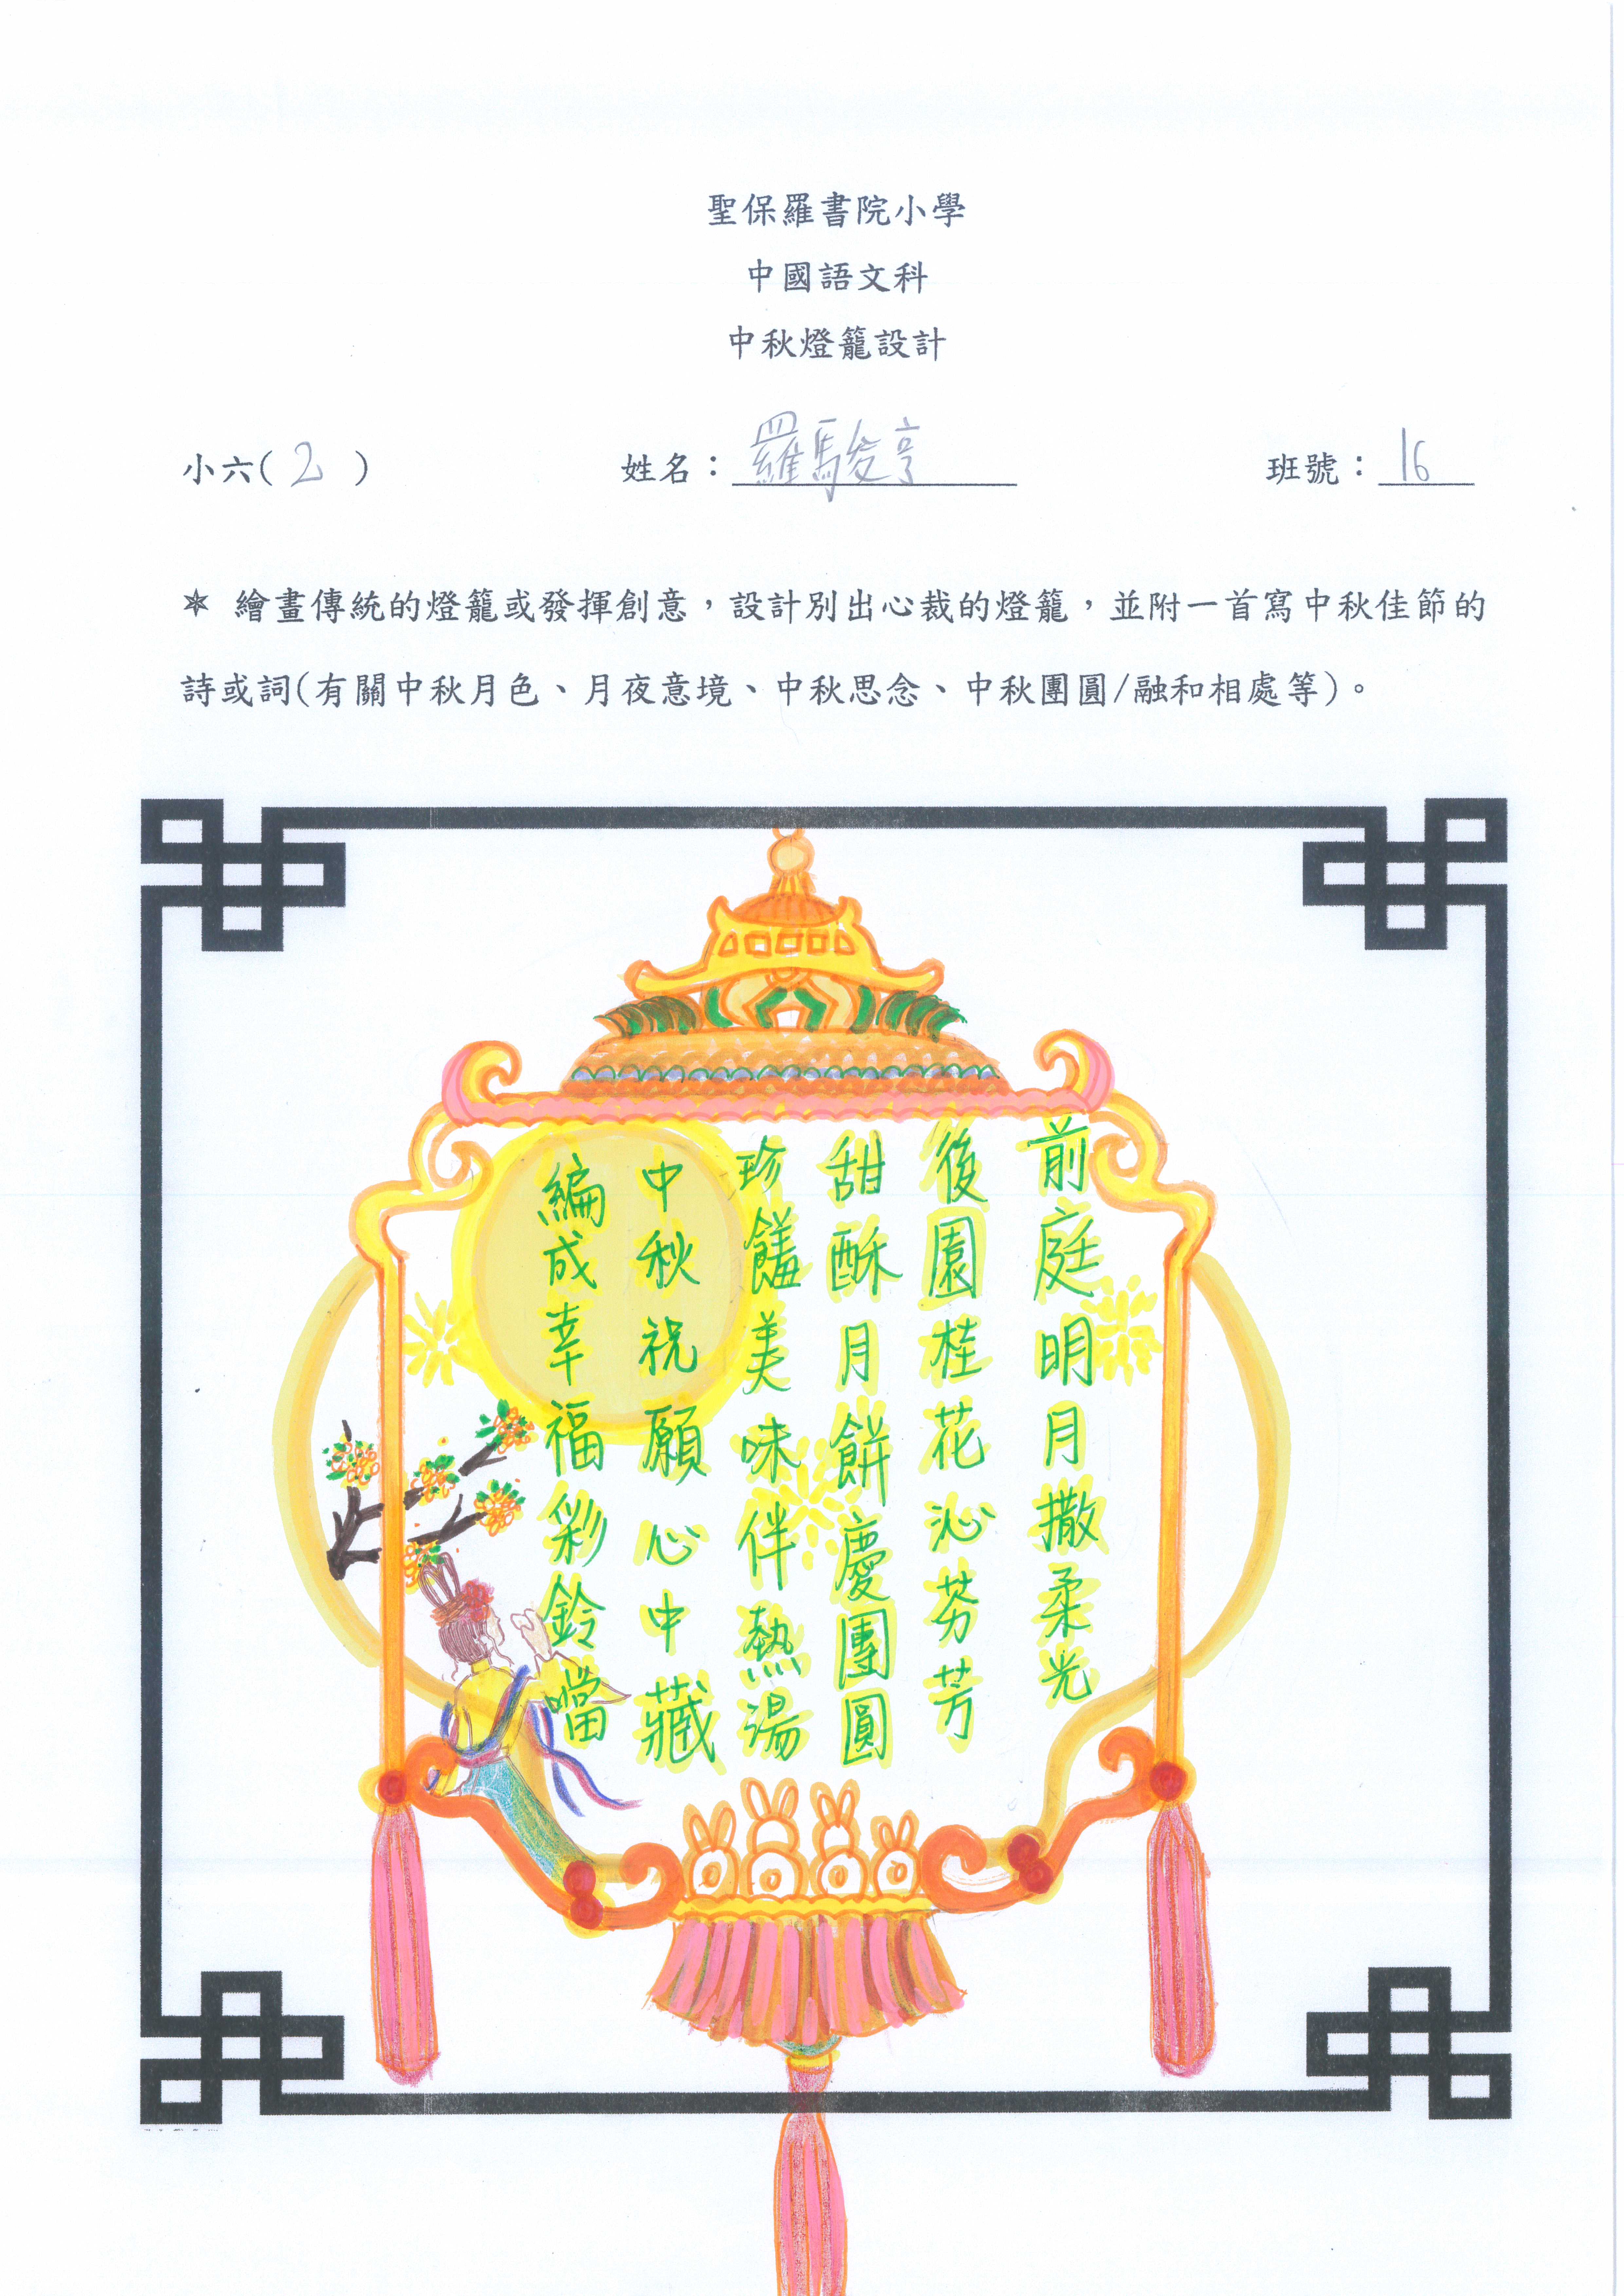 聖保羅書院小學
中國語文科
中秋燈籠設計
小六( 2 ) 姓名：羅駿亨 班號：16
✶ 繪畫傳統的燈籠或發揮創意，設計別出心裁的燈籠，並附一首寫中秋佳節的
詩或詞(有關中秋月色、月夜意境、中秋思念、中秋團圓/融和相處等)。
前庭明月撒柔光
後園桂花沁芬芳
甜酥月餅慶團圓
珍饈美味伴熱湯
中秋祝願心中藏
編成幸福彩鈴噹